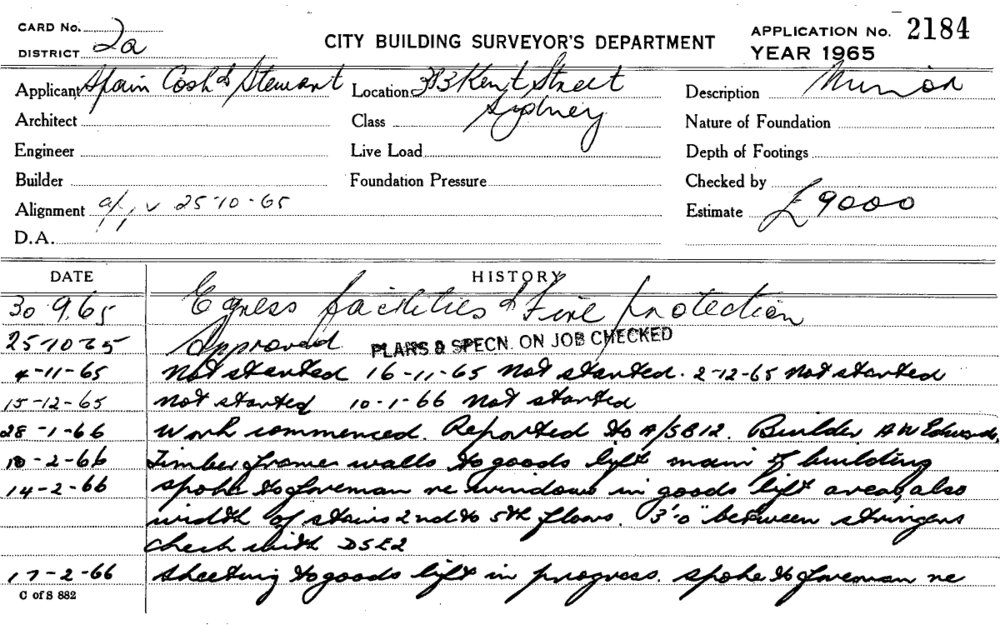 CARD No. 2a
DISTRICT
CITY BUILDING SURVEYOR'S DEPARTMENT
APPLICATION No. 2184
YEAR 1965
Applicant Spain Cosh & Stewart
Location 383 Kent Street
Sydney
Description
Architect
Class
Nature of Foundation
Engineer
Live Load
Depth of Footings
Builder
Foundation Pressure
Checked by
Alignment 25-10-65
Estimate £9000
D.A.
DATE HISTORY
30 9.65 Egress facilities & Fire protection
25-10-65 Approved PLANS & SPECN. ON JOB CHECKED
4-11-65 Not started 16-11-65 Not started. 2-12-65 Not started
15-12-65 Not started 10-1-66 Not started
28-1-66 Work commenced. Reported to A/SB12. Builder A W Edwards,
10-2-66 Timber frames walls to goods lift main of building
14-2-66 spoke to foreman re windows in goods lift area, also
width of stairs 2nd to 5th floors. 3'0" between stringers
check with DSE2
17-2-66 sheeting to goods lift in progress. spoke to foreman re
C of S 882